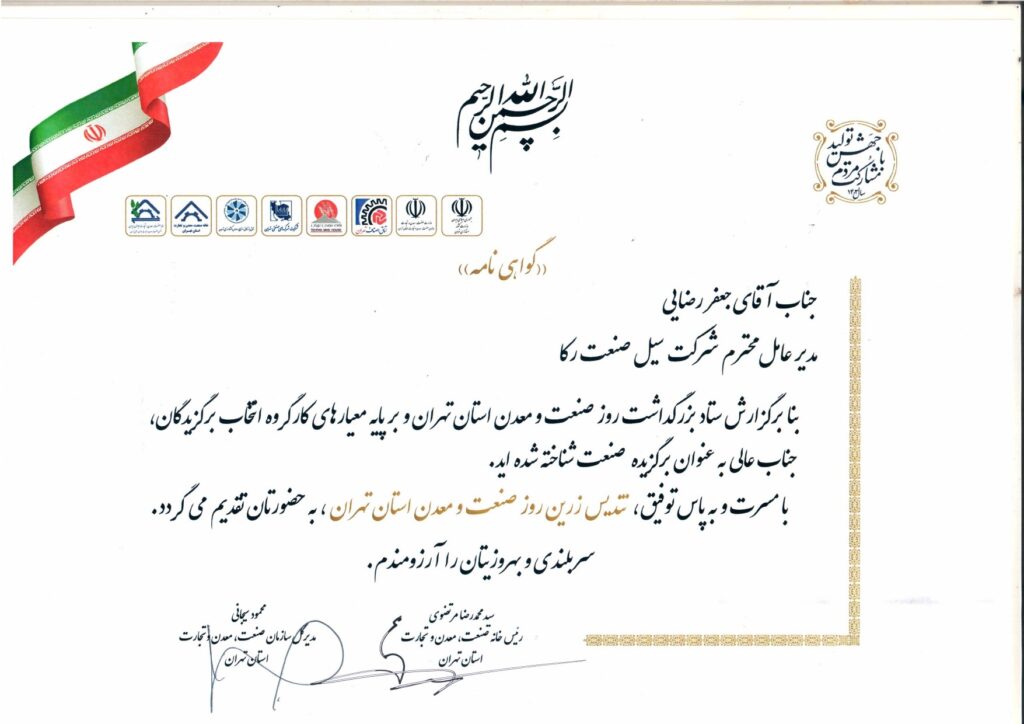 بسم الله الرحمن الرحیم
جهش تولید
با
مشارکت مردم
سال ۱۴۰۳
اتاق اصناف تهران
خانه صنعت، معدن و تجارت
استان تهران
((گواهی نامه))
جناب آقای جعفر رضایی
مدیر عامل محترم شرکت سیل صنعت رکا
بنا برگزارش ستاد بزرگداشت روز صنعت و معدن استان تهران و بر پایه معیارهای کارگروه انتخاب برگزیدگان،
جناب عالی به عنوان برگزیده صنعت شناخته شده اید.
با مسرت و به پاس توفیق، تندیس زرین روز صنعت و معدن استان تهران، به حضورتان تقدیم می گردد.
سربلندی و بهروزیتان را آرزومندم.
سید محمدرضا مرتضوی
رئیس خانه صنعت، معدن و تجارت
استان تهران
محمود سیجانی
مدیر کل سازمان صنعت، معدن و تجارت
استان تهران